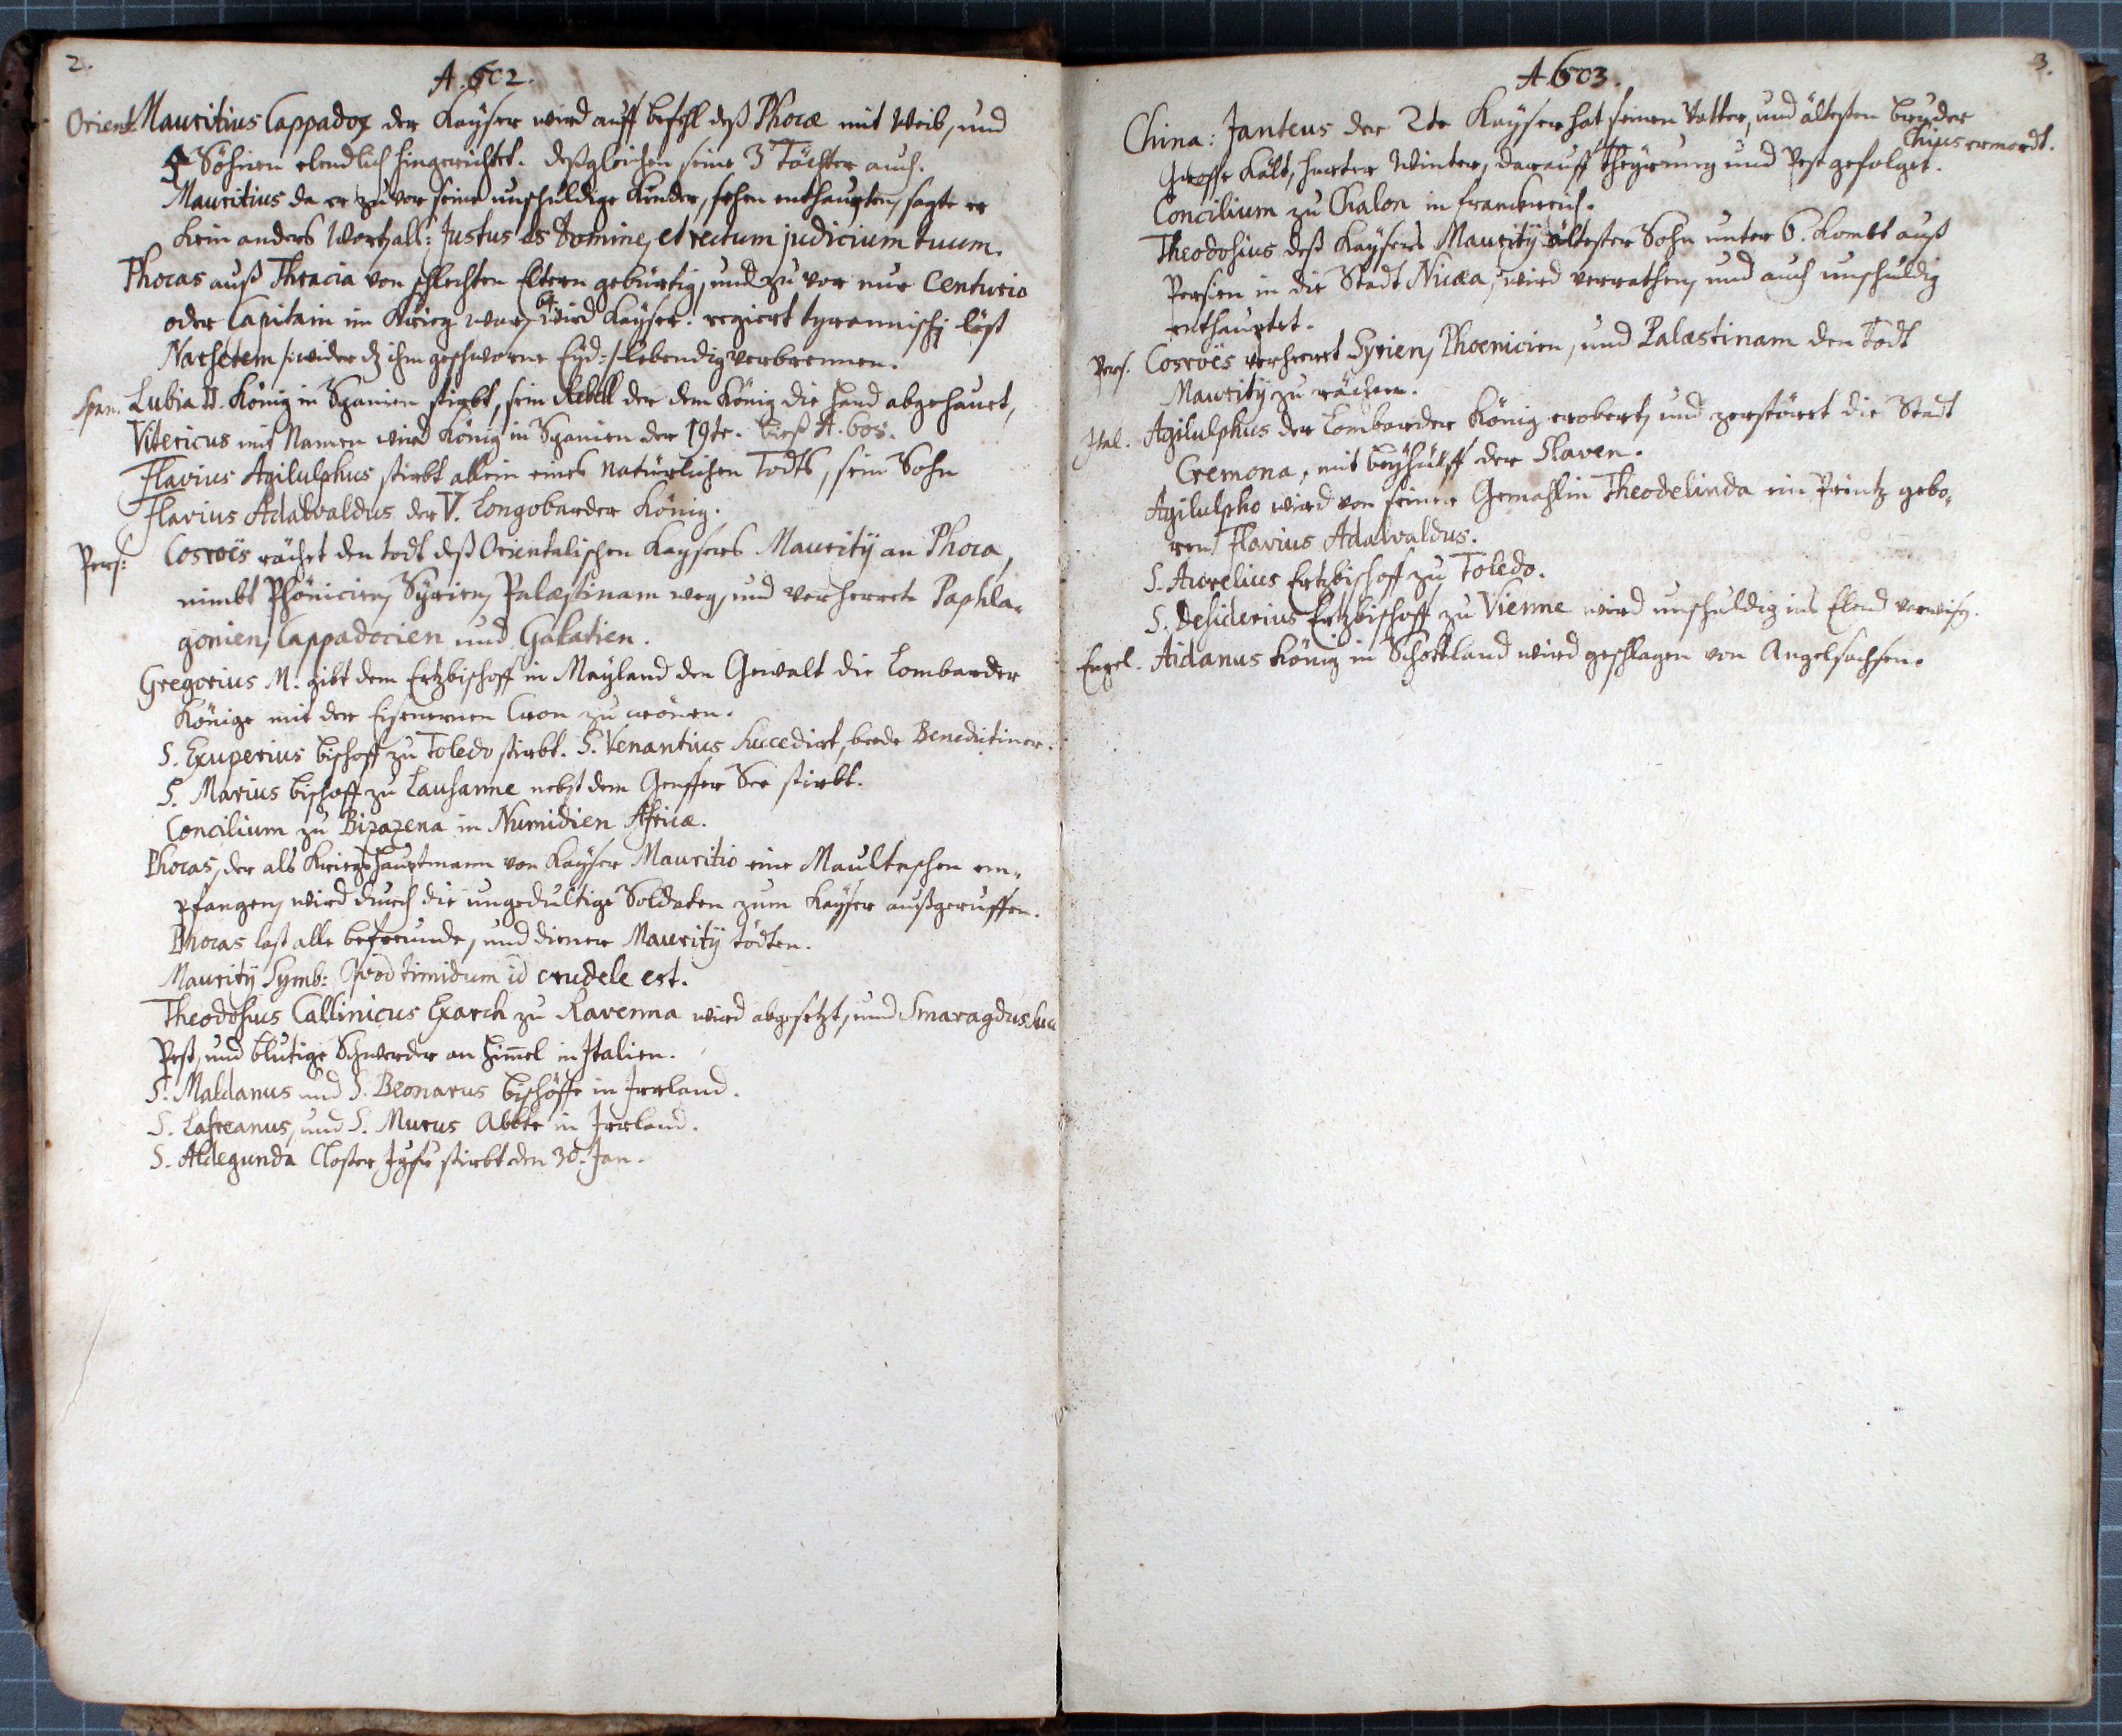 2.
A. 602.
Orient. Mauritius Cappadox der Kayser wird auff befehl deß Phocæ mit Weib, und
5 Söhnen elendlich hingerichtet. deßgleichen seine 3 Töchter auch.
Mauritius da er zuvor seine unschuldige Kinder, sehen enthaupten, sagte er
kein anders Wort, als: Justus es Domine, et rectum judicium tuum.
Phocas auß Thracia von schlechten Eltern gebürtig, und zu vor nur Centurio
oder Capitain im Krieg war, wird Kayser. regiert tyrannisch, läst
Narsetem /: wider dz ihm geschworne Eyd :/ lebendig verbrennen.
Span. Lubia II. König in Spanien stirbt, sein Rebell der dem König die Hand abgehauet,
Vitericus mit Namen wird König in Spanien der 19te. bieß A. 608.
Flavius Agilulphus stirbt allein eines natürlichen Todts, sein Sohn
Flavius Adalvaldus der V. Longobarder König.
Pers: Cosroës rächet den todt deß Orientalischen Kaysers Mauritÿ an Phoca,
nimbt Phönicien, Syrien, Palæstinam weg, und verherrete Paphla-
gonien, Cappadocien und Galatien.
Gregorius M. gibt dem Ertzbischoff in Mayland den Gewalt die Lombarder
Könige mit der Eisernen Cron zu crönen.
S. Exuperius bischoff zu Toledo stirbt. S. Venantius Succedirt, beede Benedictiner.
S. Marius bischoff zu Lausanne nebst dem Genffer See stirbt.
Concilium zu Bizazena in Numidien Africæ.
Phocas, der als Kriegshauptmann von Kayser Mauritio eine Maultaschen em-
pfangen, wird durch die ungedultige Soldaten zum Kayser außgeruffen.
Phocas last alle befreunde, und diener Maurity tödten.
Maurity Symb: Quod timidum id crudele est.
Theodosius Callinicus Exarch zu Ravenna wird abgesetzt, und Smaragdus Suc
Pest, und blutige Schwerder an Himmel in Italien.
S. Maldanus und S. Beonarus bischöffe in Irrland.
S. Lafreanus, und S. Murus Abbte in Irrland.
S. Aldegunda Closter Jgfr stirbt den 30. Jan.
3.
A. 603.
China: Janteus der 2te Kayser hat seinen Vatter, und ältesten bruder
Chius ermordt.
Grosse Kält, harter Winter, darauff theyrung und Pest gefolget.
Concilium zu Chalon in Franckreich.
Theodosius deß Kaysers Maurity ältester Sohn unter 6. kombt auß
Persien in die Stadt Nicæa, wird verrathen, und auch unschuldig
enthauptet.
Pers. Cosroës verheeret Syrien, Phoenicien, und Palæstinam den Todt
Maurity zu rächen.
Ital. Agilulphus der Lombarder König erobert, und zerstöret die Stadt
Cremona, mit beyhülff der Slaven.
Agilulpho wird von seiner Gemahlin Theodelinda ein Printz gebo-
ren Flavius Adalvaldus.
S. Aurelius Ertzbischoff zu Toledo.
S. Desiderius Ertzbischoff zu Vienne wird unschuldig ins Elend verwisen.
Engel. Aidanus König in Schottland wird geschlagen von Angelsachsen.